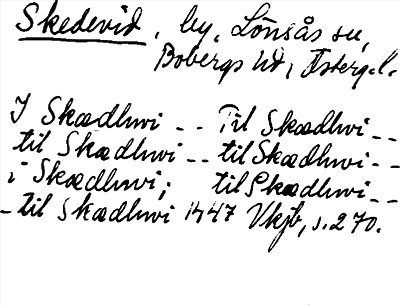 Skedevid, by, Lönsås sn,
Bobergs hd, Östergl.
I Skædhwi -- Til Skædhwi --
til Skædhwi -- til Skædhwi --
i Skædhwi; til Skædhwi --
- til Skædhwi 1447 Vkjb, s. 270.